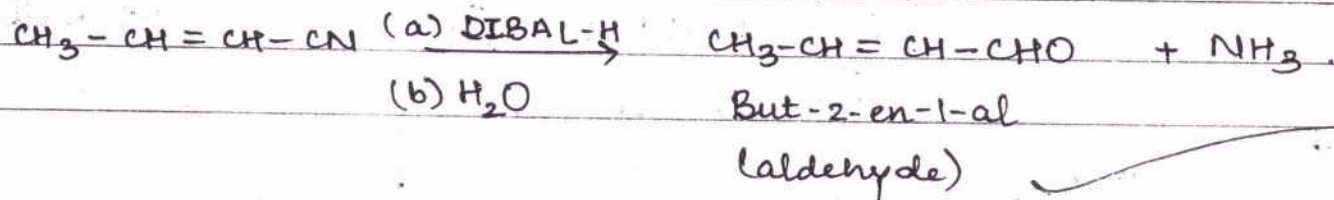 CH₃ - CH = CH - CN (a) DIBAL-H → CH₃-CH = CH-CHO + NH₃.
(b) H₂O But-2-en-1-al
(aldehyde)